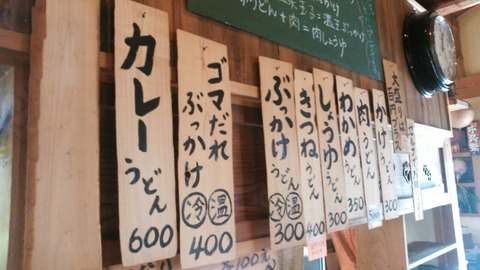 カレーうどん 600
ゴマだれぶっかけ 冷 温 400
ぶっかけうどん 冷 温 300
きつねうどん 400
しょうゆうどん 300
わかめうどん 350
肉うどん 500
かけうどん 300
大盛りは
うどん+肉=肉しょうゆ